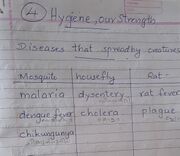 4 Hygiene, our Strength
Diseases that spread by creatures
Mosquito housefly Rat
malaria dysentery rat fever
dengue fever cholera plague
chikungunya